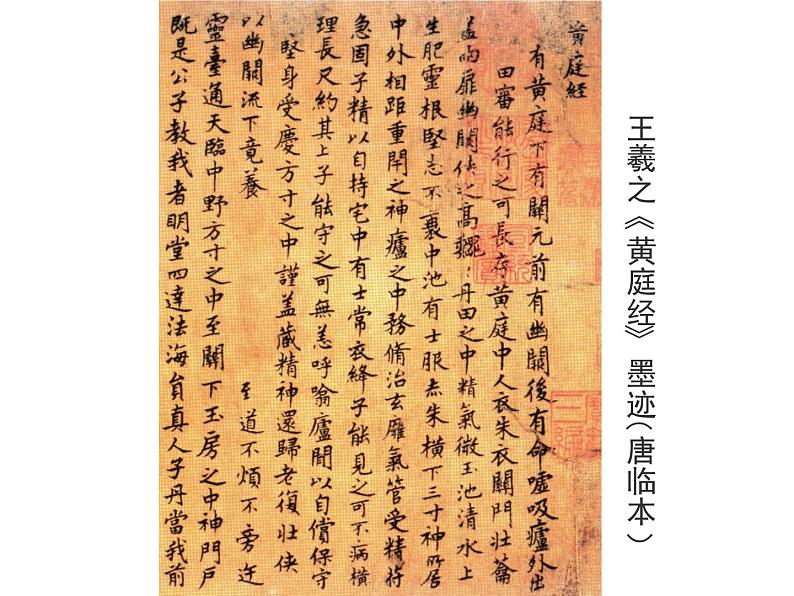 王羲之《黄庭经》 墨迹(唐临本)
黄庭経
有黄庭下有關元前有幽闕後有命嘘吸廬外出
田審能行之可長存黄庭中人衣朱衣關門壯籥
盖两扉幽闕侠之高巍〻丹田之中精氣微玉池清水上
生肥靈根堅志不衰中池有士服赤朱横下三寸神所居
中外相距重閇之神廬之中務脩治玄廱氣管受精符
急固子精以自持宅中有士常衣絳子能見之可不病横
理長尺約其上子能守之可無恙呼噏廬間以自償保守
堅身受慶方寸之中謹盖藏精神還歸老復壯侠
以幽闕流下竟養 至道不煩不旁迕
靈臺通天臨中野方寸之中至關下玉房之中神門戸
既是公子教我者明堂四達法海貟真人子丹當我前